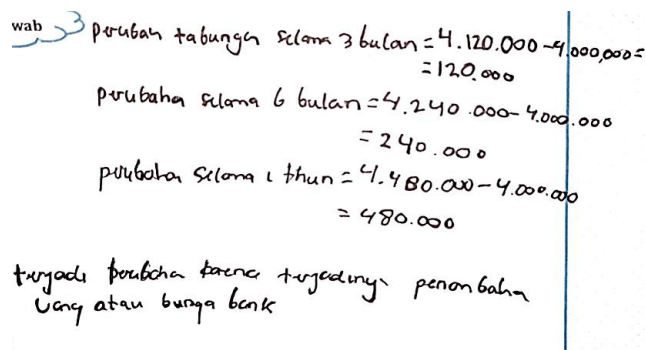 wab 3
perubah tabungn selama 3 bulan = 4.120.000 - 4.000,000 =
= 120.000
perubaha selama 6 bulan = 4.240.000 - 4.000.000
= 240.000
perubaha selama 1 thun = 4.480.000 - 4.000.000
= 480.000
terjadi perubaha karena terjadinya penambaha
uang atau bunga bank